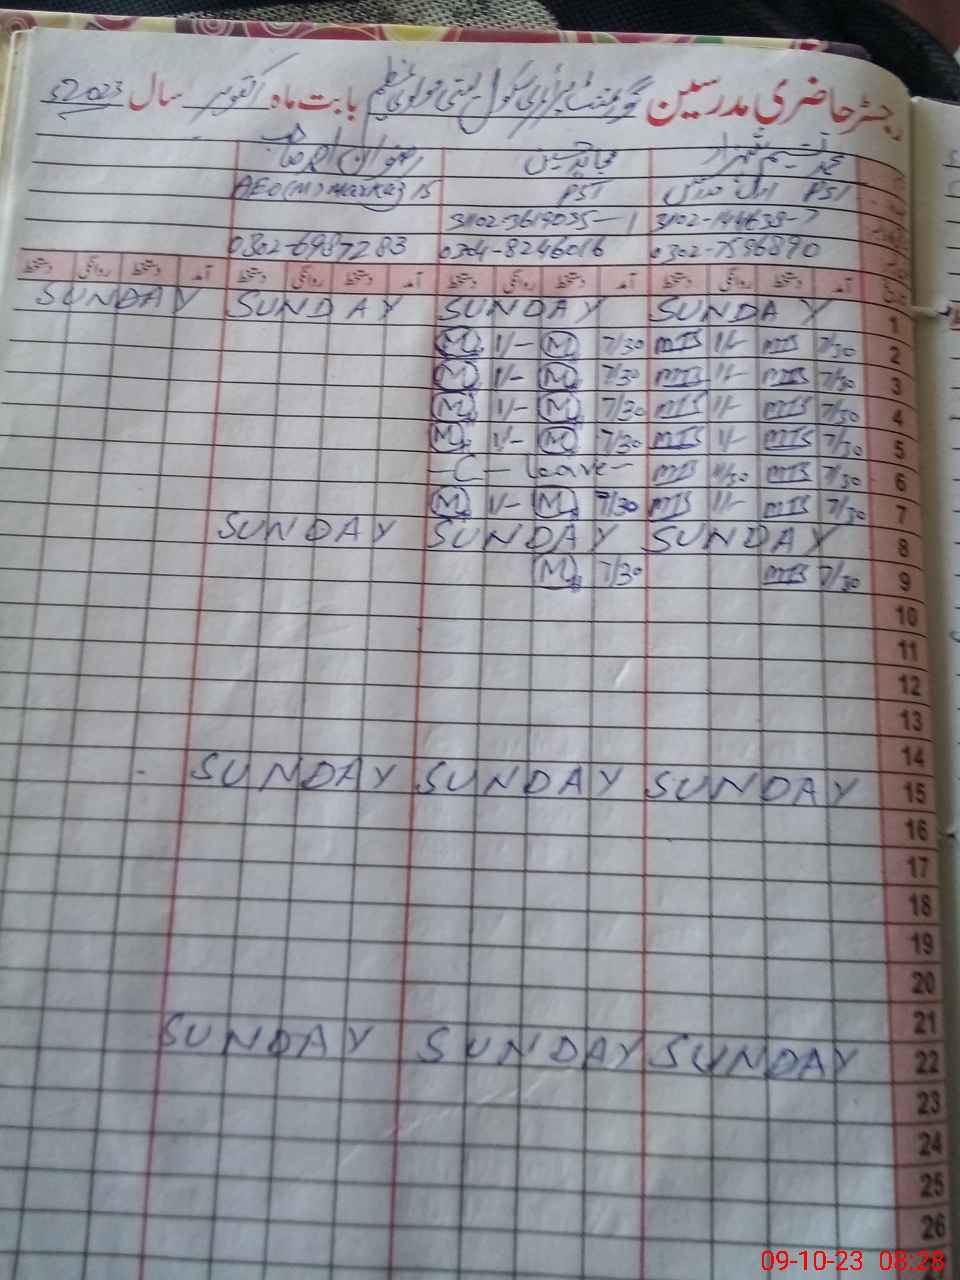 رجسٹر حاضری مدرسین گورنمنٹ پرائمری سکول بستی مولوی عظیم بابت ماہ اکتوبر سال 2023ء
محمد نسیم شہزاد مجاہد حسین رضوان احمد صاحب
PST PST AEO (M) Markaz 15
31102-3614035-1
0302-7596890 0304-8246016 0302-6987283
آمد دستخط روانگی دستخط آمد دستخط روانگی دستخط آمد دستخط روانگی دستخط آمد دستخط روانگی دستخط
SUNDAY SUNDAY SUNDAY SUNDAY 1
M 1/- M 7/30 MIS 1/- MIS 7/30 2
M 1/- M 7/30 MIS 1/- MIS 7/30 3
M 1/- M 7/30 MIS 1/- MIS 7/30 4
M 1/- M 7/30 MIS 1/- MIS 7/30 5
-C- Leave- MIS 11/30 MIS 7/30 6
M 1/- M 7/30 MIS 1/- MIS 7/30 7
SUNDAY SUNDAY SUNDAY 8
M 7/30 MIS 7/30 9
10
11
12
13
14
SUNDAY SUNDAY SUNDAY 15
16
17
18
19
20
21
SUNDAY SUNDAY SUNDAY 22
23
24
25
26
09-10-23 08:28